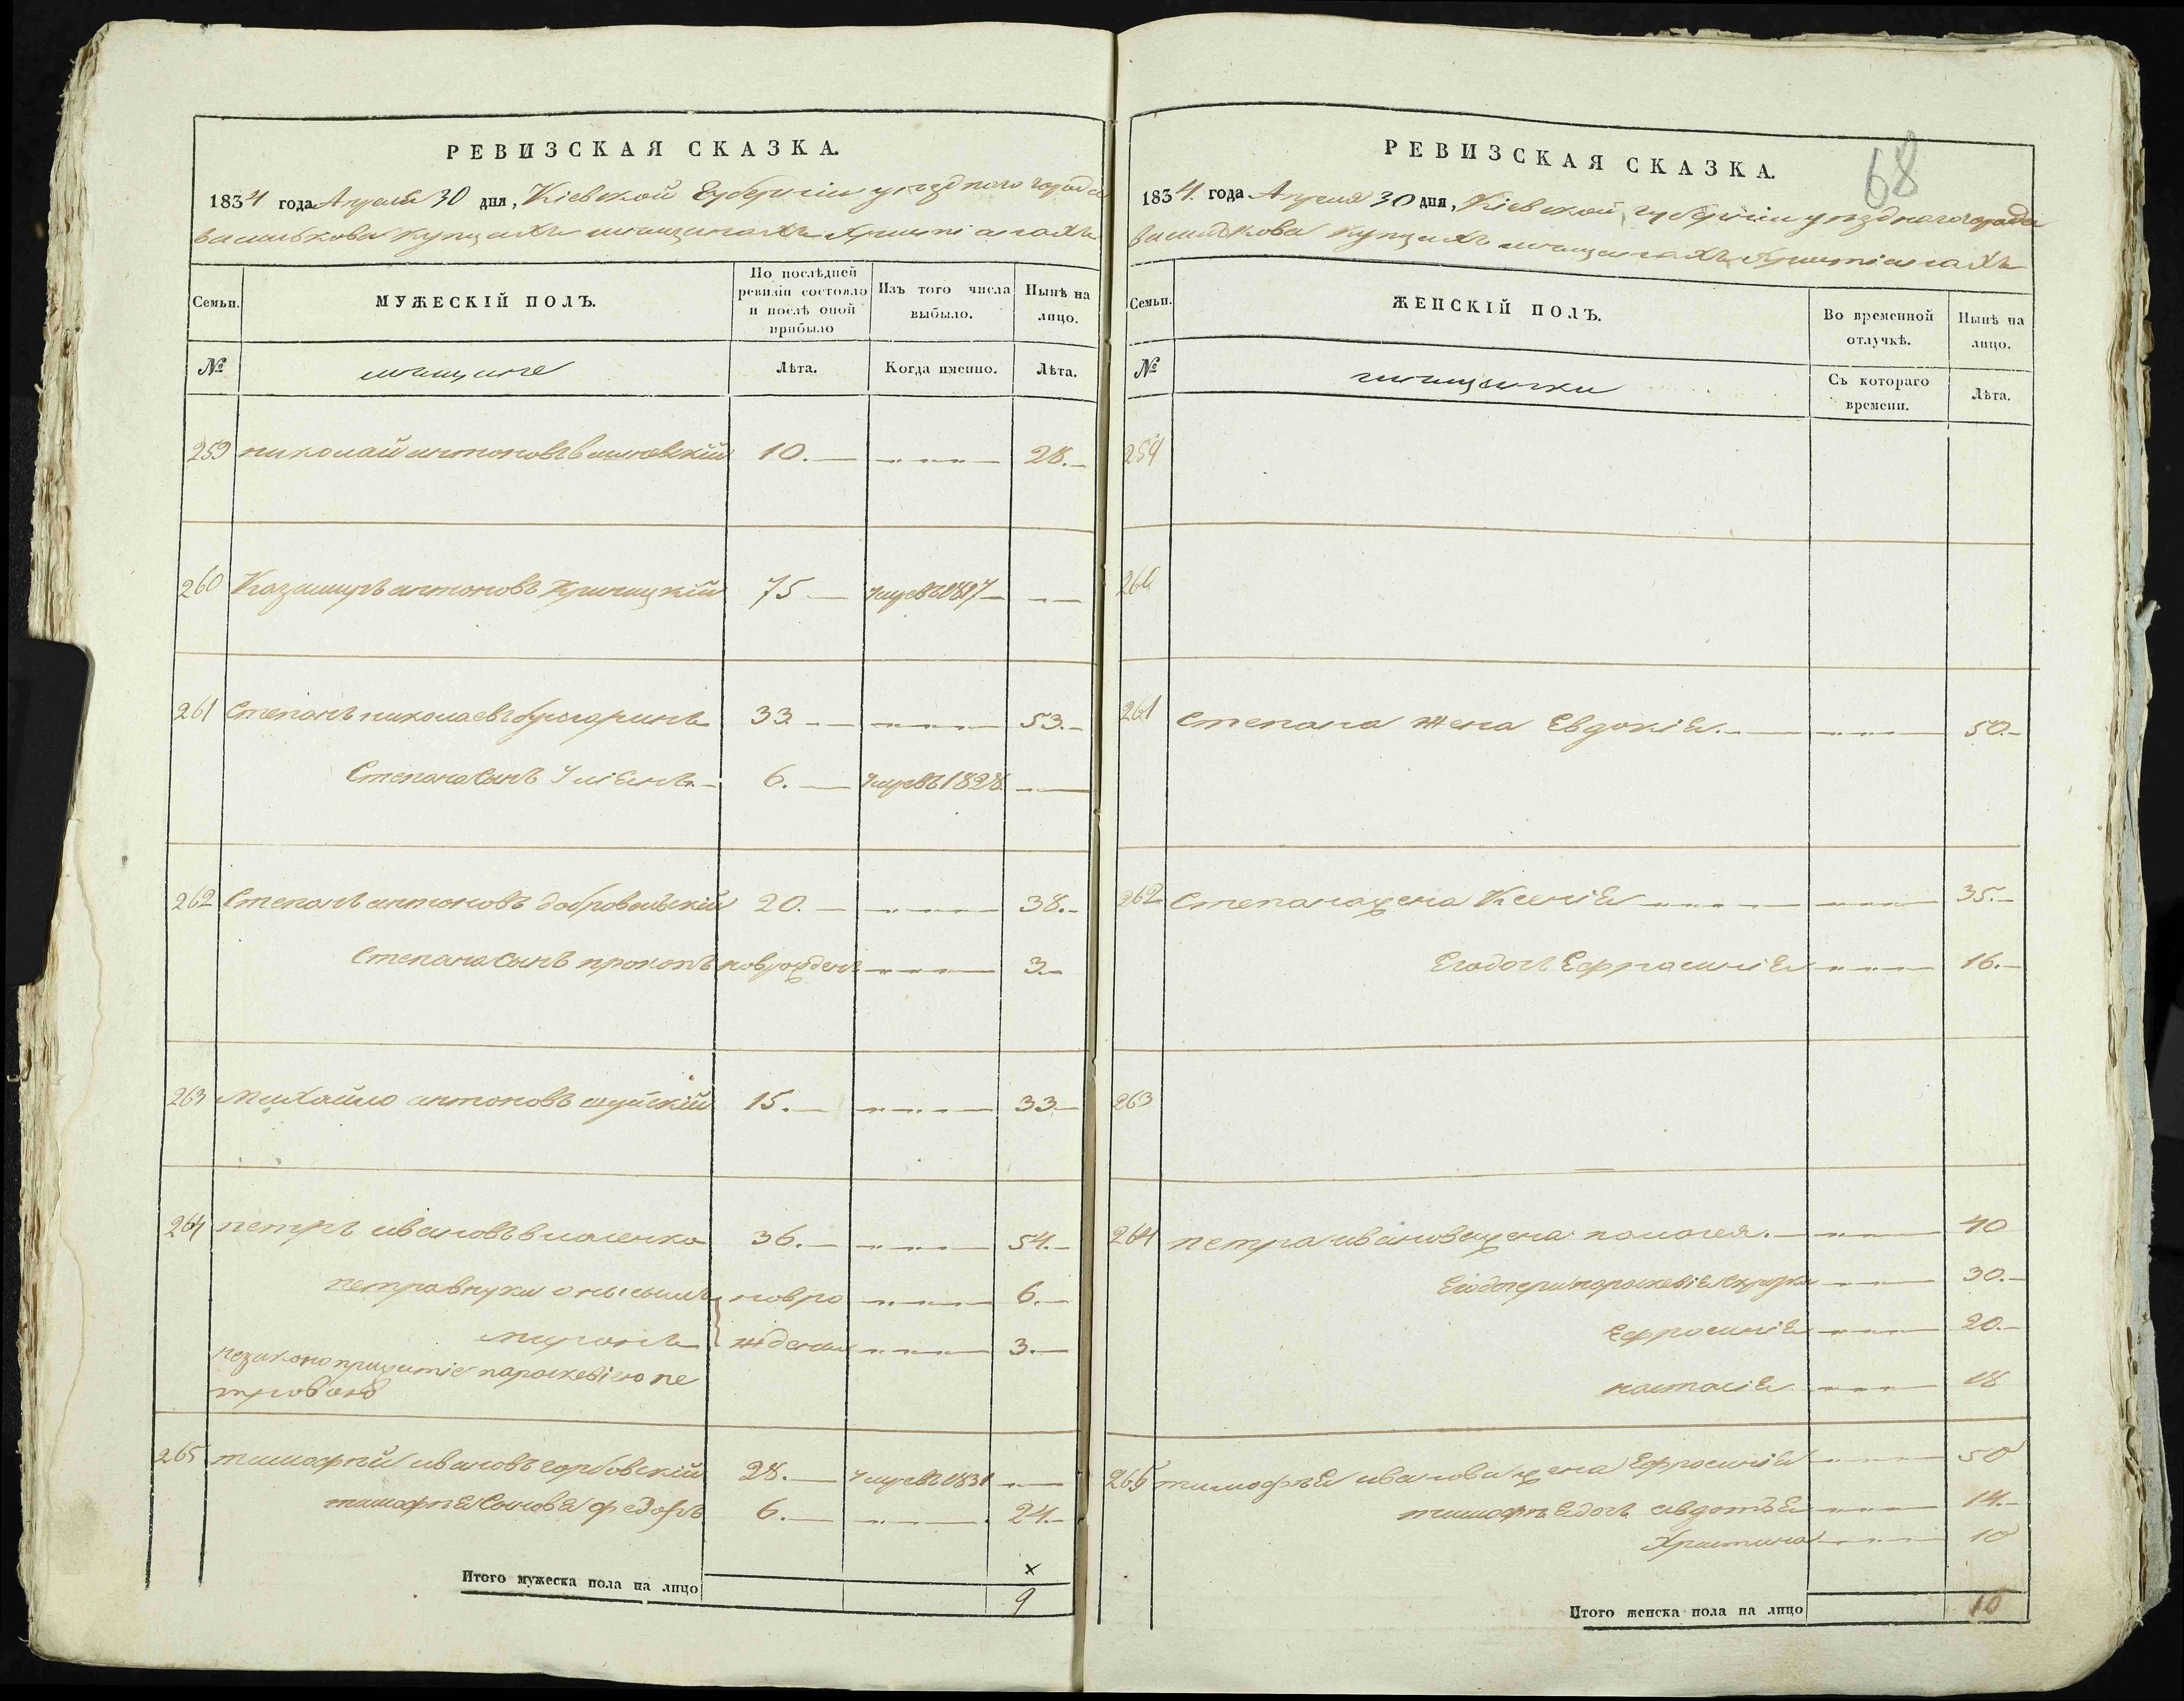 РЕВИЗСКАЯ СКАЗКА.
1834 года Апреля 30 дня, Кіевской Губерніи уезднаго города
василькова купцахъ мещанахъ христіанахъ
Семьи.
МУЖЕСКІЙ ПОЛЪ.
По послѣдней ревизіи состояло и послѣ оной прибыло
Изъ того числа выбыло.
Нынѣ на лицо.
№
мещане
Лѣта.
Когда именно.
Лѣта.
259 николай антоновъ 10. 28.
260 Казимиръ антоновъ Криницкій 75 умревъ 1817
261 Степанъ николаевъ булгаринъ 33. 53.
Степана Сынъ Уліянъ 6. умревъ 1828
262 Степанъ антоновъ добровольскій 20. 38.
Степана Сынъ прокопъ новрожденъ 3.
263 Михайло антоновъ шуйскій 15. 33
264 петръ ивановъ власенко 36. 54.
петра внуки онысымъ новро 6.
миронъ ждены 3.
незаконоприжитіе параскевіею пе
тровою
265 тимофей ивановъ горбовскій 28. умревъ 1831
тимофея Сыновя федоръ 6. 24.
×
Итого мужеска пола на лицо 9
РЕВИЗСКАЯ СКАЗКА.
68
1834. года Апреля 30 дня, Кіевской губерніи уезднаго города
василькова купцахъ мещанахъ христіанахъ
Семьи.
ЖЕНСКІЙ ПОЛЪ.
Во временной отлучкѣ.
Нынѣ на лицо.
№
мещанки
Съ котораго времени.
Лѣта.
259
260
261 Степана жена Евдокія 50.
262 Степана жена Ксенія 35.
Егодочъ Ефросинія 16.
263
264 петра иванова жена палагея. 40
Егодочери параскевія 30.
Ефросинія 20.
настасія 18
265 тимофея иванова жена Ефросинія 50
тимофея дочъ авдотья 14.
Христина 10
Итого женска пола на лицо 10